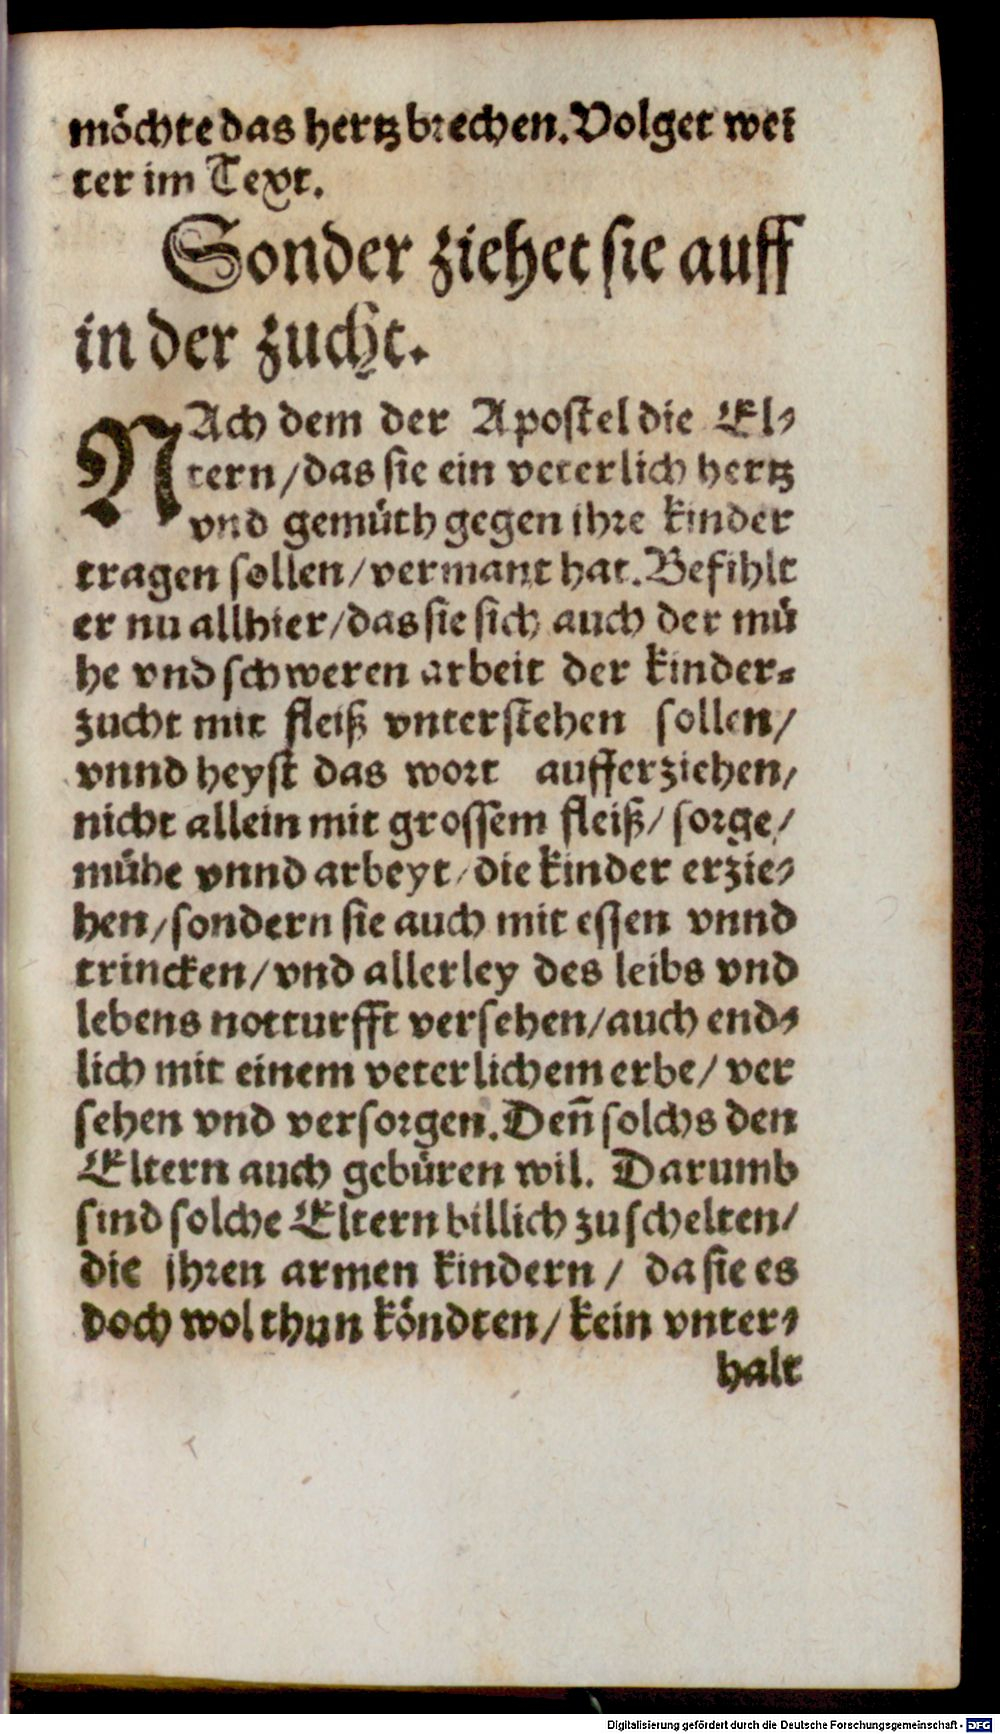 möchte das hertz brechen. Volget wei
ter im Text.
Sonder ziehet sie auff
in der zucht.
NAch dem der Apostel die El⸗
tern / das sie ein veterlich hertz
vnd gemüth gegen ihre kinder
tragen sollen / vermant hat. Befihlt
er nu allhier / das sie sich auch der mü
he vnd schweren arbeit der kinder⸗
zucht mit fleiß vnterstehen sollen /
vnnd heyst das wort aufferziehen /
nicht allein mit grossem fleiß / sorge /
mühe vnnd arbeyt / die kinder erzie⸗
hen / sondern sie auch mit essen vnnd
trincken / vnd allerley des leibs vnd
lebens notturfft versehen / auch end⸗
lich mit einem veterlichem erbe / ver
sehen vnd versorgen. Den̄ solchs den
Eltern auch gebüren wil. Darumb
sind solche Eltern billich zu schelten /
die ihren armen kindern / da sie es
doch wol thun köndten / kein vnter⸗
halt
Digitalisierung gefördert durch die Deutsche Forschungsgemeinschaft - DFG